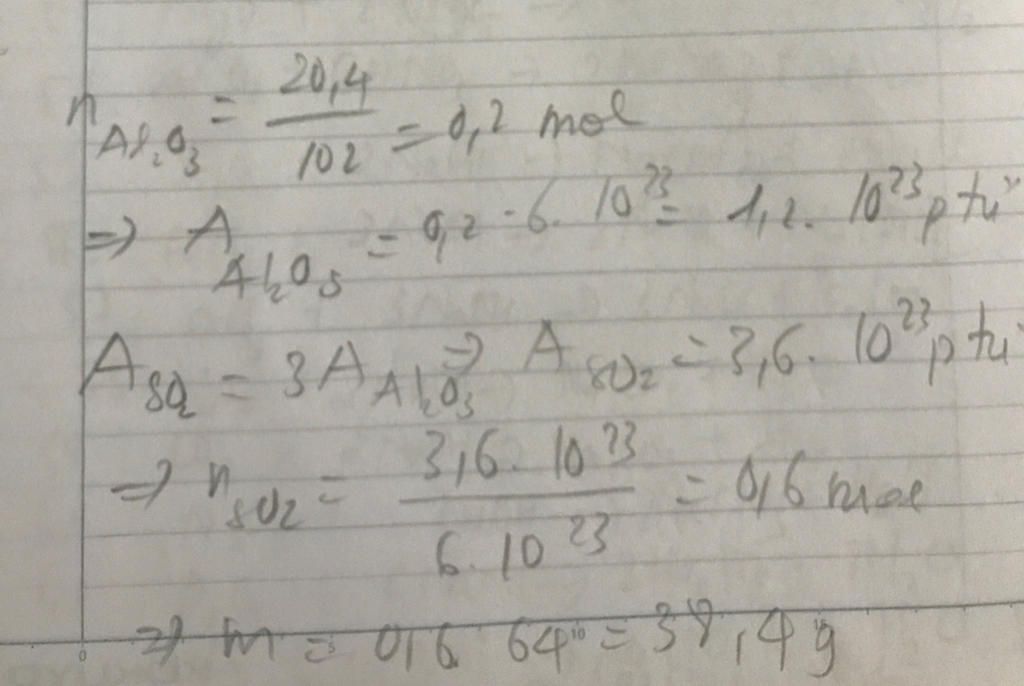 n Al₂O₃ = 20,4 / 102 = 0,2 mol
=> A Al₂O₃ = 0,2 . 6 . 10²³ = 1,2 . 10²³ p tử
A SO₂ = 3A Al₂O₃ => A SO₂ = 3,6 . 10²³ p tử
=> n SO₂ = 3,6 . 10²³ / 6 . 10²³ = 0,6 mol
=> m = 0,6 64 = 38,4 g